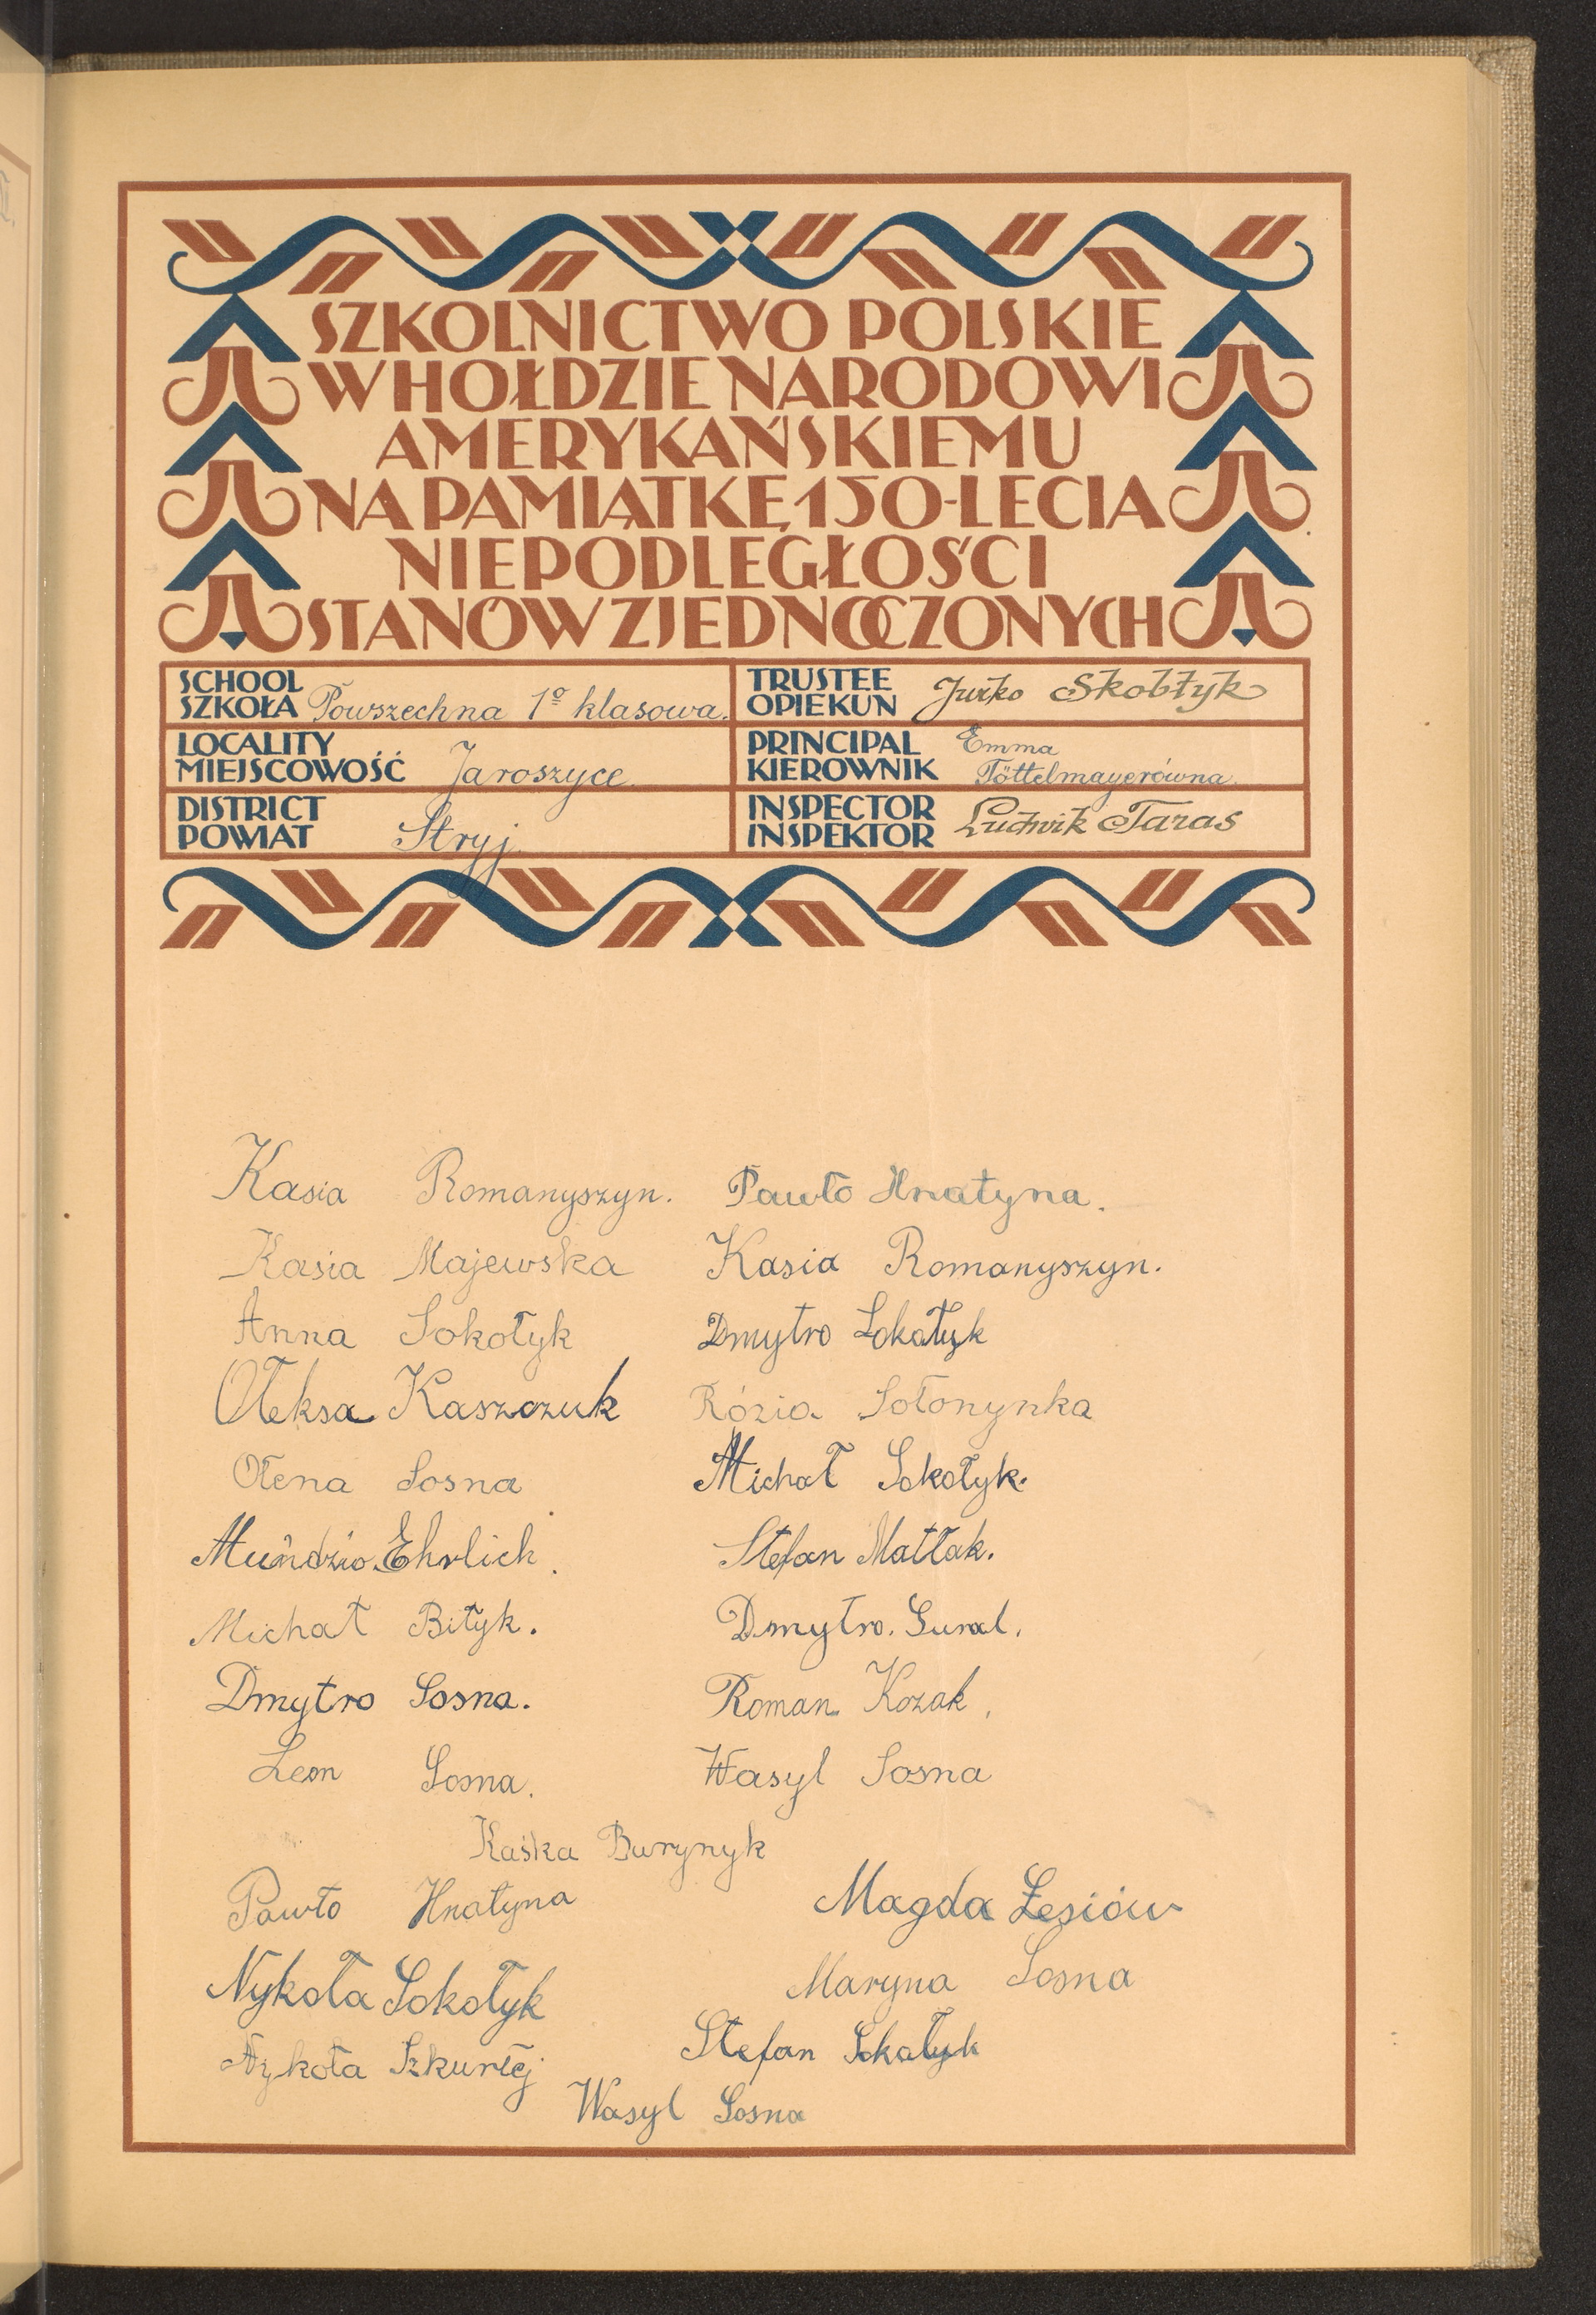 SZKOLNICTWO POLSKIE
W HOŁDZIE NARODOWI
AMERYKAŃSKIEMU
NA PAMIĄTKĘ 150-LECIA
NIEPODLEGŁOŚCI
STANÓW ZJEDNOCZONYCH
SCHOOL
SZKOŁA Powszechna 1º klasowa.
TRUSTEE
OPIEKUN Jurko Skobłyk
LOCALITY
MIEJSCOWOŚĆ Jaroszyce
PRINCIPAL Emma
KIEROWNIK Töttelmayerówna
DISTRICT
POWIAT Stryj
INSPECTOR
INSPEKTOR Ludwik Taras
Kasia Romanyszyn.
Kasia Majewska
Anna Sokołyk
Ołeksa Kaszczuk
Ołena Sosna
Muńdzio Ehrlich.
Michał Biłyk.
Dmytro Sosna.
Leon Sosna.
Pawło Hnatyna.
Kasia Romanyszyn.
Dmytro Sokałyk
Rózia Sołonynka
Michał Sokołyk.
Stefan Matłak.
Dmytro. Sural.
Roman Kozak.
Wasyl Sosna
Kaśka Burynyk
Pawło Hnatyna
Magda Łesiów
Nykoła Sokołyk
Maryna Sosna
Nykoła Szkurłej
Stefan Sokałyk
Wasyl Sosna